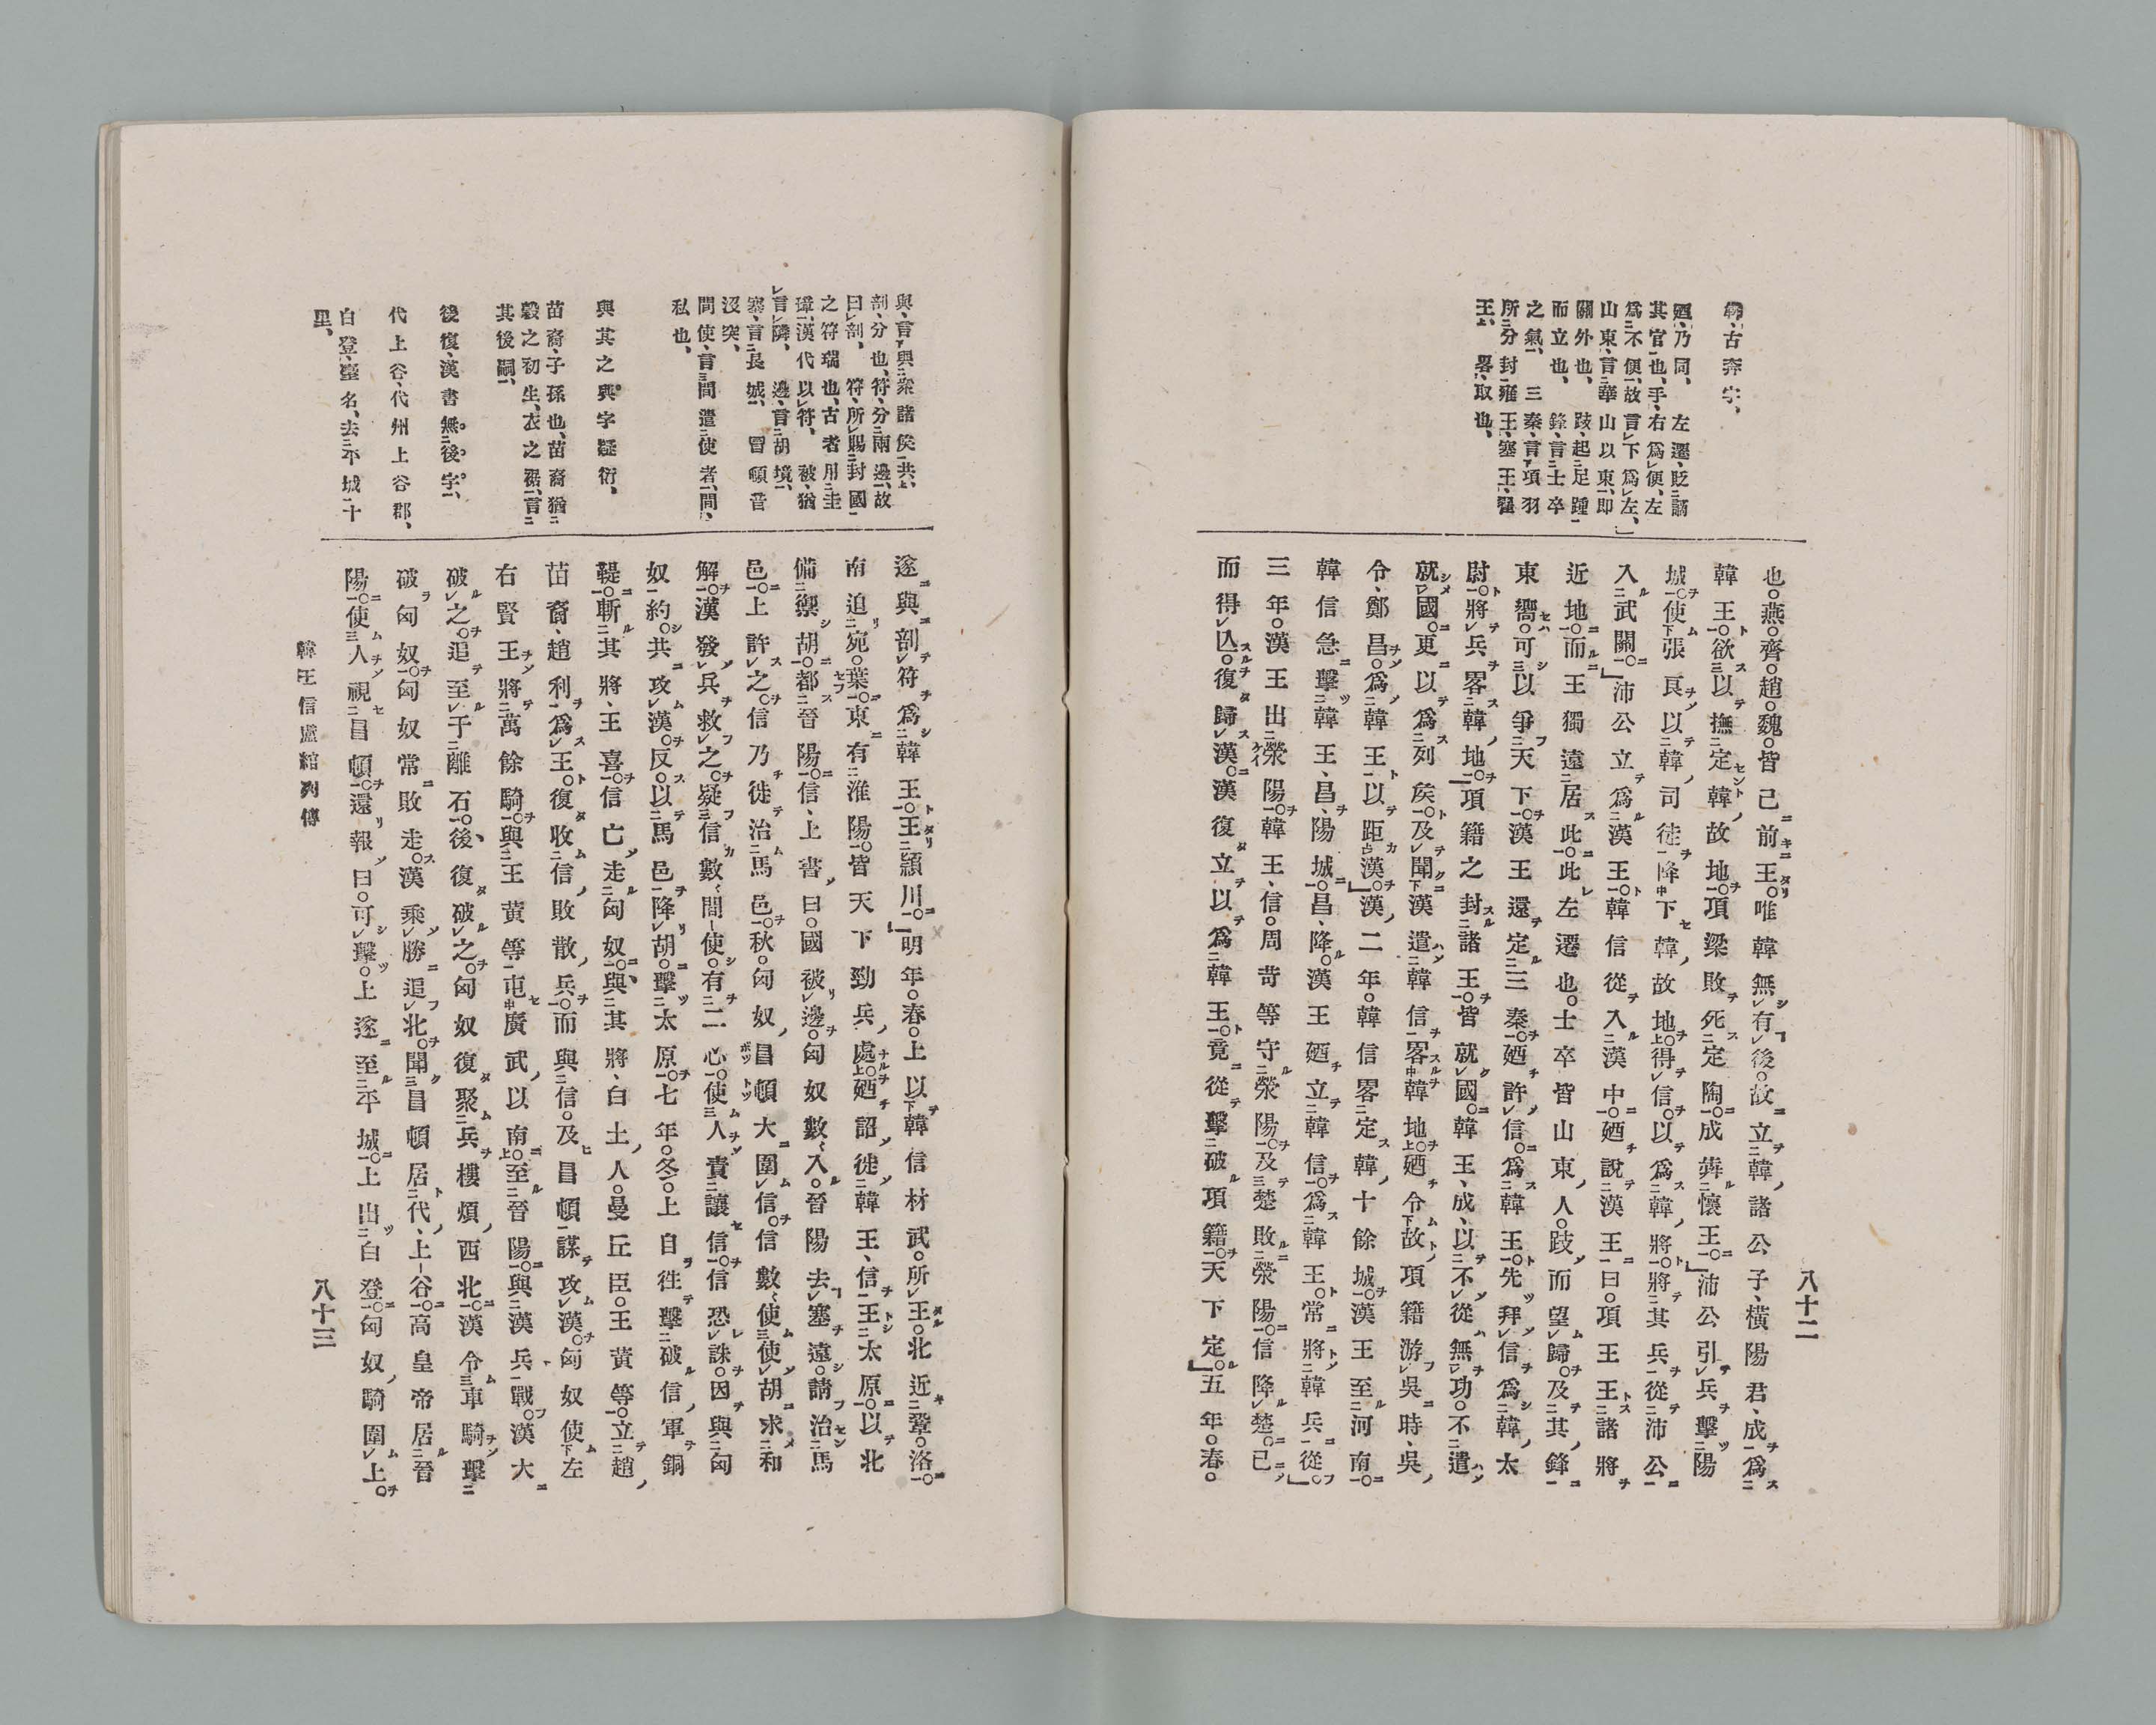 犇、古奔字、
廼、乃同、左遷、貶謫
其官也、手、右爲便、左
爲不便、故言下爲左、
山東、言華山以東、即
關外也、跂、起足踵
而立也、鋒、言士卒
之氣、三秦、言項羽
所分封雍王、塞王、翟
王、畧、取也、
八十二
也。燕。齊。趙。魏。皆已前王。唯韓無有後。故立韓諸公子、橫陽君、成爲
韓王。欲以撫定韓故地。項梁敗死定陶。成犇懷王。」沛公引兵擊陽
城。使張良以韓司徒降下韓故地。得信。以爲韓將。將其兵從沛公
入武關。」沛公立爲漢王。韓信從入漢中。廼說漢王曰。項王王諸將
近地。而王獨遠居此。此左遷也。士卒皆山東人。跂而望歸。及其鋒
東嚮。可以爭天下。漢王還定三秦。廼許信。爲韓王。先拜信爲韓太
尉。將兵畧韓地。」項籍之封諸王。皆就國。韓王、成、以不從無功。不遣
就國。更以爲列矦。及聞漢遣韓信畧韓地。廼令故項籍游吳時、吳
令、鄭昌。爲韓王以距漢。」漢二年。韓信畧定韓十餘城。漢王至河南。
韓信急擊韓王、昌、陽城。昌、降。漢王廼立韓信。爲韓王。常將韓兵從。」
三年。漢王出滎陽。韓王、信。周苛等守滎陽。及楚敗滎陽。信降楚。已
而得亾。復歸漢。漢復立以爲韓王。竟從擊破項籍。天下定。」五年。春。
與、言與衆諸矦共、
剖、分也、符、分兩邊、故
曰剖、符、所賜封國
之符瑞也、古者用圭
璋、漢代以符、被、猶
言隣、邊、言胡境、
塞、言長城、冒頓音
沒突、
間使、言間遣使者、間、
私也、
與其之與字疑衍、
苗裔、子孫也、苗裔猶
穀之初生、衣之裾、言
其後嗣、
後復、漢書無後字、
代上谷、代州上谷郡、
白登、臺名、去平城十
里、
遂與剖符爲韓王。王潁川。」明年。春。上以韓信材武。所王。北近鞏。洛。
南迫宛。葉。東有淮陽。皆天下勁兵處。廼詔徙韓王、信王太原。以北
備禦胡。都晉陽。信、上書曰。國被邊。匈奴數入。晉陽去塞遠。請治馬
邑。上許之。信乃徙治馬邑。秋。匈奴冒頓大圍信。信數使使胡求和
解。漢發兵救之。疑信數間使。有二心。使人責讓信。信恐誅。因與匈
奴約。共攻漢。反。以馬邑降胡。擊太原。七年。冬。上自往擊破信軍銅
鞮。斬其將、王喜。信亡走匈奴。與其將、白土人。曼丘臣。王黄等。立趙
苗裔、趙利爲王。復收信敗散兵。而與信。及冒頓謀攻漢。匈奴使左
右賢王將萬餘騎。與王黄等屯廣武以南。至晉陽。與漢兵戰。漢大
破之。追至于離石。後、復破之。匈奴復聚兵樓煩西北。漢令車騎擊
破匈奴。匈奴常敗走。漢乘勝追北。聞冒頓居代、上谷。高皇帝居晉
陽。使人視冒頓。還報曰。可擊。上遂至平城。上出白登。匈奴騎圍上。
韓王信盧綰列傳
八十三